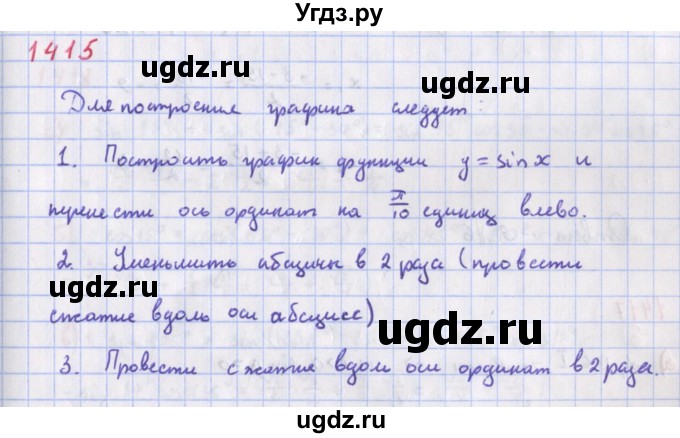 Угдз.ру
1415
ugdz.ru
Для построения графика следует:
ugdz.ru
1. Построить график функции y = sin x и
перенести ось ординат на π/10 единиц влево.
2. Уменьшить абсциссы в 2 раза (провести
сжатие вдоль оси абсцисс)
ugdz.ru
3. Провести сжатие вдоль оси ординат в 2 раза.
ugdz.ru